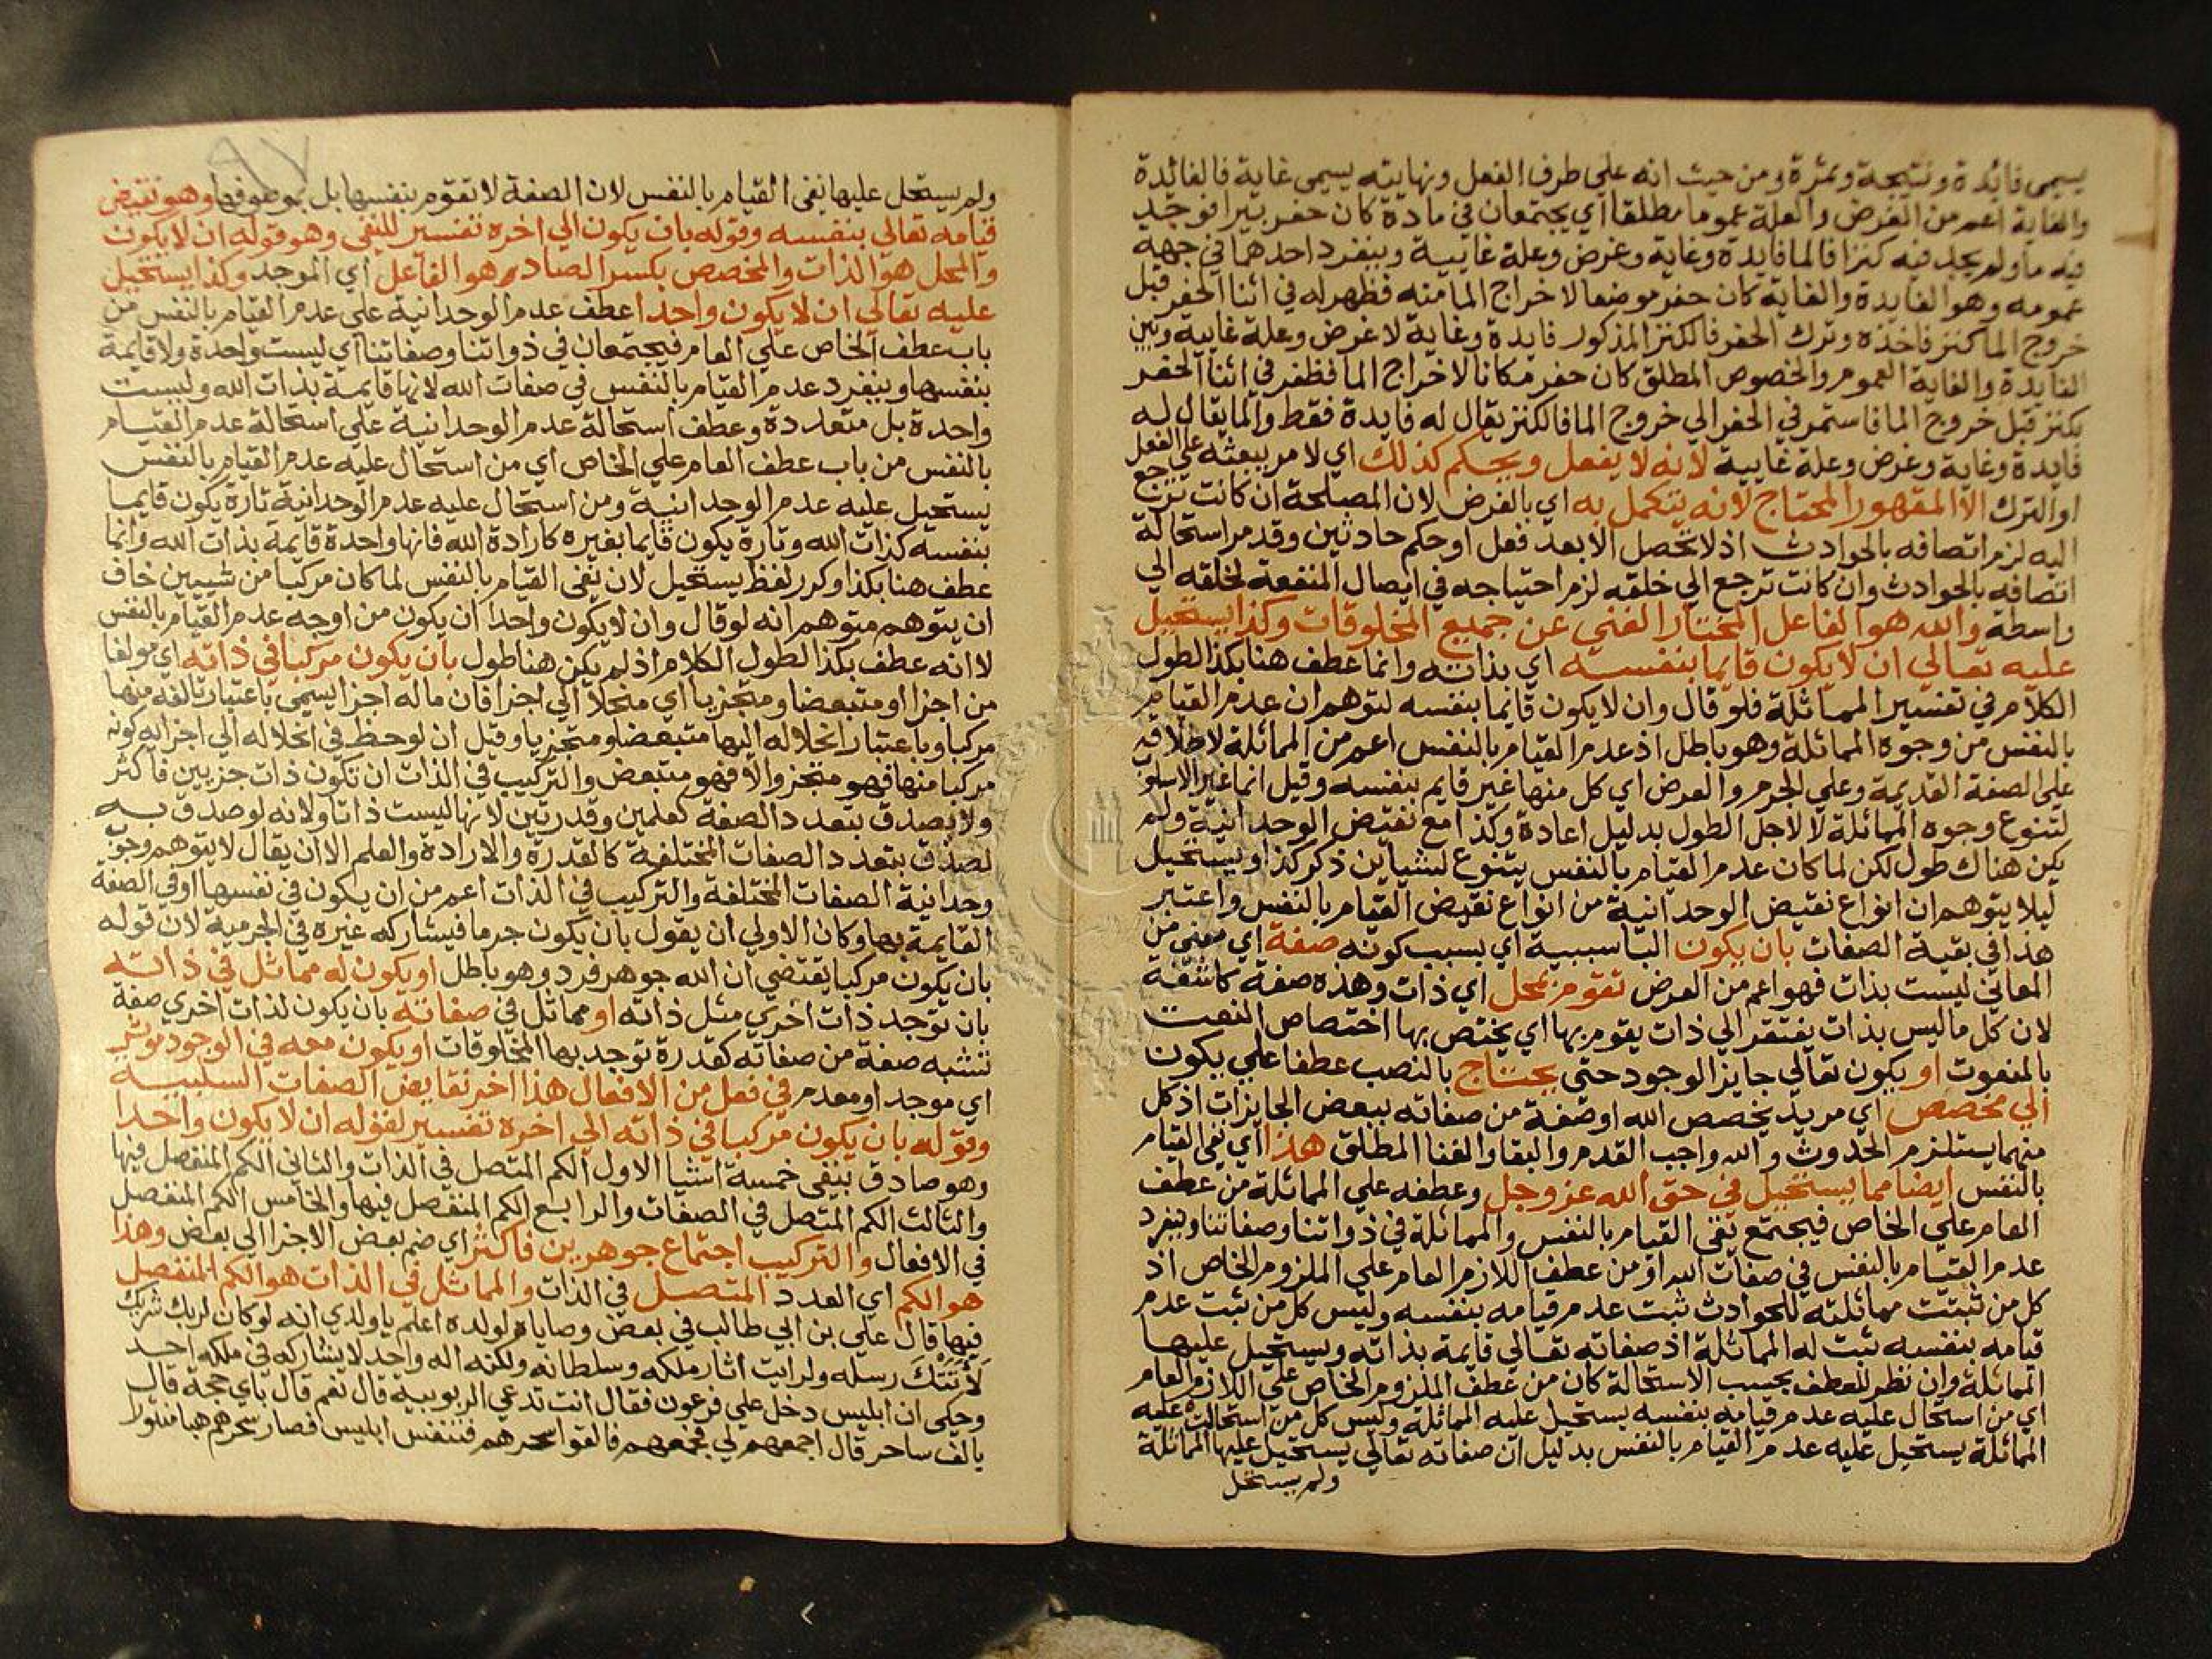 يسمى فائدة ونتيجة وثمرة ومن حيث انه علي طرف الفعل ونهايته يسمى غاية فالفائدة
والغاية اعم من الغرض والعلة عموما مطلقا اي يجتمعان في مادة كان حفر بيرا فوجد
فيه ما ولم يجد فيه كنزا فالما فايدة وغاية وغرض وعلة غايية وينفرد احدهما في جهة
عمومه وهو الفايدة والغاية كان حفر موضعا لاخراج الما منه فظهر له في اثنا الحفر قبل
خروج الما كنز فاخذه وترك الحفر فالكنز المذكور فايدة وغاية لا غرض وعلة غايية وبين
الفايدة والغاية العموم والخصوص المطلق كان حفر مكانا لاخراج الما فظفر في اثنا الحفر
بكنز قبل خروج الما فاستمر في الحفر الي خروج الما فالكنز يقال له فايدة فقط والما يقال له
فايدة وغاية وغرض وعلة غايية لانه لا يفعل ويحكم كذلك اي لامر يبعثه علي الفعل
او الترك الا المقهور المحتاج لانه يتكمل به اي بالغرض لان المصلحة ان كانت ترجع
اليه لزم اتصافه بالحوادث اذ لا تحصل الا بعد فعل او حكم حادثين وقد مر استحالة
اتصافه بالحوادث وان كانت ترجع الي خلقه لزم احتياجه في ايصال المنفعة لخلقه الي
واسطة والله هو الفاعل المختار الغني عن جميع المخلوقات وكذا يستحيل
عليه تعالي ان لا يكون قايما بنفسه اي بذاته وانما عطف هنا بكذا لطول
الكلام في تفسير المماثلة فلو قال وان لا يكون قايما بنفسه لتوهم ان عدم القيام
بالنفس من وجوه المماثلة وهو باطل اذ عدم القيام بالنفس اعم من المماثلة لاطلاقه
علي الصفة القديمة وعلي الجرم والعرض اي كل منها غير قايم بنفسه وقيل انما غير الاسلوب
لتنوع وجوه المماثلة لا لاجل الطول بدليل اعادة وكذا مع نقيض الوحدانية ولم
يكن هناك طول لكن لما كان عدم القيام بالنفس يتنوع لشياين ذكر كذا ويستحيل
ليلا يتوهم ان انواع نقيض الوحدانية من انواع نقيض القيام بالنفس واعتبر
هذا في بقية الصفات بان يكون البا سببية اي بسبب كونه صفة اي معنى من
المعاني ليست بذات فهو اعم من العرض تقوم بمحل اي ذات وهذه صفة كاشفة
لان كل ما ليس بذات يفتقر الي ذات يقوم بها اي يختص بها اختصاص النعت
بالمنعوت او يكون تعالي جايز الوجود حتى يحتاج بالنصب عطفا علي يكون
الي مخصص اي مريد يخصص الله او صفة من صفاته ببعض الجايزات اذ كل
منهما يستلزم الحدوث والله واجب القدم والبقا والغنا المطلق هذا اي نفي القيام
بالنفس ايضا مما يستحيل في حق الله عز وجل وعطفه علي المماثلة من عطف
العام علي الخاص فيجتمع نفي القيام بالنفس والمماثلة في ذواتنا وصفاتنا وينفرد
عدم القيام بالنفس في صفات الله او من عطف اللازم العام علي الملزوم الخاص اذ
كل من ثبتت مماثلته للحوادث ثبت عدم قيامه بنفسه وليس كل من ثبت عدم
قيامه بنفسه ثبت له المماثلة اذ صفاته تعالي قايمة بذاته ويستحيل عليها
المماثلة وان نظر للعطف بحسب الاستحالة كان من عطف الملزوم الخاص علي اللازم العام
اي من استحال عليه عدم قيامه بنفسه يستحيل عليه المماثلة وليس كل من استحالت عليه
المماثلة يستحيل عليه عدم القيام بالنفس بدليل ان صفاته تعالي يستحيل عليها المماثلة
ولم يستحل
٩٧
ولم يستحل عليها نفى القيام بالنفس لان الصفة لا تقوم بنفسها بل بموصوفها وهو نقيض
قيامه تعالي بنفسه وقوله بان يكون الي اخره تفسير للنفي وهو قوله ان لا يكون
والمحل هو الذات والمخصص بكسر الصاد هو الفاعل اي الموجد وكذا يستحيل
عليه تعالي ان لا يكون واحدا عطف عدم الوحدانية علي عدم القيام بالنفس من
باب عطف الخاص علي العام فيجتمعان في ذواتنا وصفاتنا اي ليست واحدة ولا قايمة
بنفسها وينفرد عدم القيام بالنفس في صفات الله لانها قايمة بذات الله وليست
واحدة بل متعددة وعطف استحالة عدم الوحدانية علي استحالة عدم القيام
بالنفس من باب عطف العام علي الخاص اي من استحال عليه عدم القيام بالنفس
يستحيل عليه عدم الوحدانية ومن استحال عليه عدم الوحدانية تارة يكون قايما
بنفسه كذات الله وتارة يكون قايما بغيره كارادة الله فانها واحدة قايمة بذات الله وانما
عطف هنا بكذا وكرر لفظ يستحيل لان نفى القيام بالنفس لما كان مركبا من شييين خاف
ان يتوهم متوهم انه لو قال وان لا يكون واحدا ان يكون من اوجه عدم القيام بالنفس
لا انه عطف بكذا لطول الكلام اذ لم يكن هنا طول بان يكون مركبا في ذاته اي مولفا
من اجزا او متبعضا ومتجزيا اي منحلا الي اجزا فان ماله اجزا يسمى باعتبار تالفه منها
مركبا وباعتبار انحلاله اليها متبعضا ومتجزيا وقيل ان لوحظ في انحلاله الي اجزا له كونه
مركبا منها فهو متجز والا فهو متبعض والتركيب في الذات ان تكون ذات جزيين فاكثر
ولا يصدق بتعدد الصفة كعلمين وقدرتين لانها ليست ذاتا ولانه لو صدق به
لصدق بتعدد الصفات المختلفة كالقدرة والارادة والعلم الا ان يقال لا يتوهم وجوب
وحدانية الصفات المختلفة والتركيب في الذات اعم من ان يكون في نفسها او في الصفة
القايمة بها وكان الاولي ان يقول بان يكون جرما فيشاركه غيره في الجرمية لان قوله
بان يكون مركبا يقتضي ان الله جوهر فرد وهو باطل او يكون له مماثل في ذاته
بان توجد ذات اخري مثل ذاته او مماثل في صفاته بان يكون لذات اخري صفة
تشبه صفة من صفاته كقدرة توجد بها المخلوقات او يكون معه في الوجود موثر
اي موجد او معدم في فعل من الافعال هذا اخر نقايض الصفات السلبية
وقوله بان يكون مركبا في ذاته الي اخره تفسير لقوله ان لا يكون واحدا
وهو صادق بنفى خمسة اشيا الاول الكم المتصل في الذات والثاني الكم المنفصل فيها
والثالث الكم المتصل في الصفات والرابع الكم المنفصل فيها والخامس الكم المنفصل
في الافعال والتركيب اجتماع جوهرين فاكثر اي ضم بعض الاجزا الي بعض وهذا
هو الكم اي العدد المتصل في الذات والمماثل في الذات هو الكم المنفصل
فيها قال علي بن ابي طالب في بعض وصاياه لولده اعلم يا ولدي انه لو كان لربك شريك
لاتتك رسله ولرايت اثار ملكه وسلطانه ولكنه اله واحد لا يشاركه في ملكه احد
وحكى ان ابليس دخل علي فرعون فقال انت تدعي الربوبية قال نعم قال باي حجة قال
بالف ساحر قال اجمعهم لي فجمعهم فالقوا سحرهم فتنفس ابليس فصار سحرهم هبا منثورا